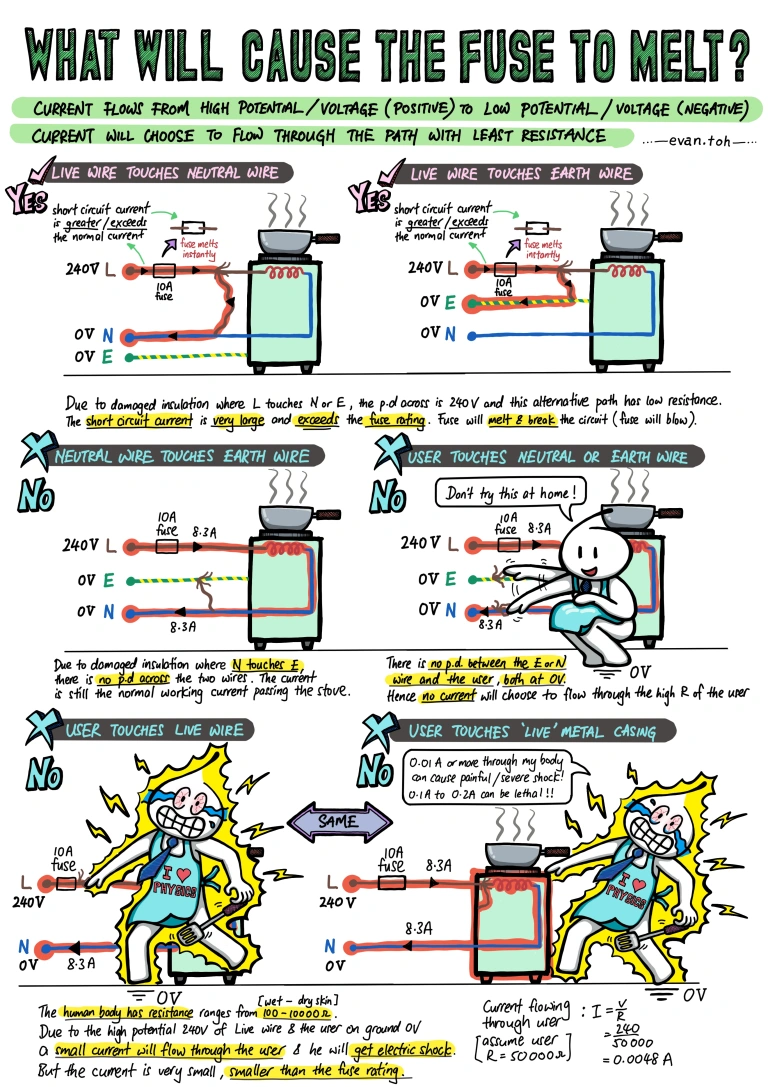 WHAT WILL CAUSE THE FUSE TO MELT?
CURRENT FLOWS FROM HIGH POTENTIAL/VOLTAGE (POSITIVE) TO LOW POTENTIAL/VOLTAGE (NEGATIVE)
CURRENT WILL CHOOSE TO FLOW THROUGH THE PATH WITH LEAST RESISTANCE
---evan.toh---
YES
LIVE WIRE TOUCHES NEUTRAL WIRE
short circuit current
is greater/exceeds
the normal current
fuse melts
instantly
240V L
10A
fuse
0V N
0V E
YES
LIVE WIRE TOUCHES EARTH WIRE
short circuit current
is greater/exceeds
the normal current
fuse melts
instantly
240V L
10A
fuse
0V E
0V N
Due to damaged insulation where L touches N or E, the p.d across is 240V and this alternative path has low resistance.
The short circuit current is very large and exceeds the fuse rating. Fuse will melt & break the circuit (fuse will blow).
NO
NEUTRAL WIRE TOUCHES EARTH WIRE
10A
fuse
8.3A
240V L
0V E
0V N
8.3A
Due to damaged insulation where N touches E,
there is no p.d across the two wires. The current
is still the normal working current passing the stove.
NO
USER TOUCHES NEUTRAL OR EARTH WIRE
Don't try this at home!
10A
fuse
8.3A
240V L
0V E
0V N
8.3A
0V
There is no p.d. between the E or N
wire and the user, both at 0V.
Hence no current will choose to flow through the high R of the user
NO
USER TOUCHES LIVE WIRE
10A
fuse
L
240V
I ♥
PHYSICS
N
0V
8.3A
0V
SAME
NO
USER TOUCHES 'LIVE' METAL CASING
0.01A or more through my body
can cause painful/severe shock!
0.1A to 0.2A can be lethal!!
10A
fuse
8.3A
L
240V
I ♥
PHYSICS
8.3A
N
0V
0V
[wet - dry skin]
The human body has resistance ranges from 100-100000Ω.
Due to the high potential 240V of Live wire & the user on ground 0V
a small current will flow through the user & he will get electric shock.
But the current is very small, smaller than the fuse rating.
Current flowing
through user
[assume user
R = 50000Ω]
: I = V/R
= 240/50000
= 0.0048 A